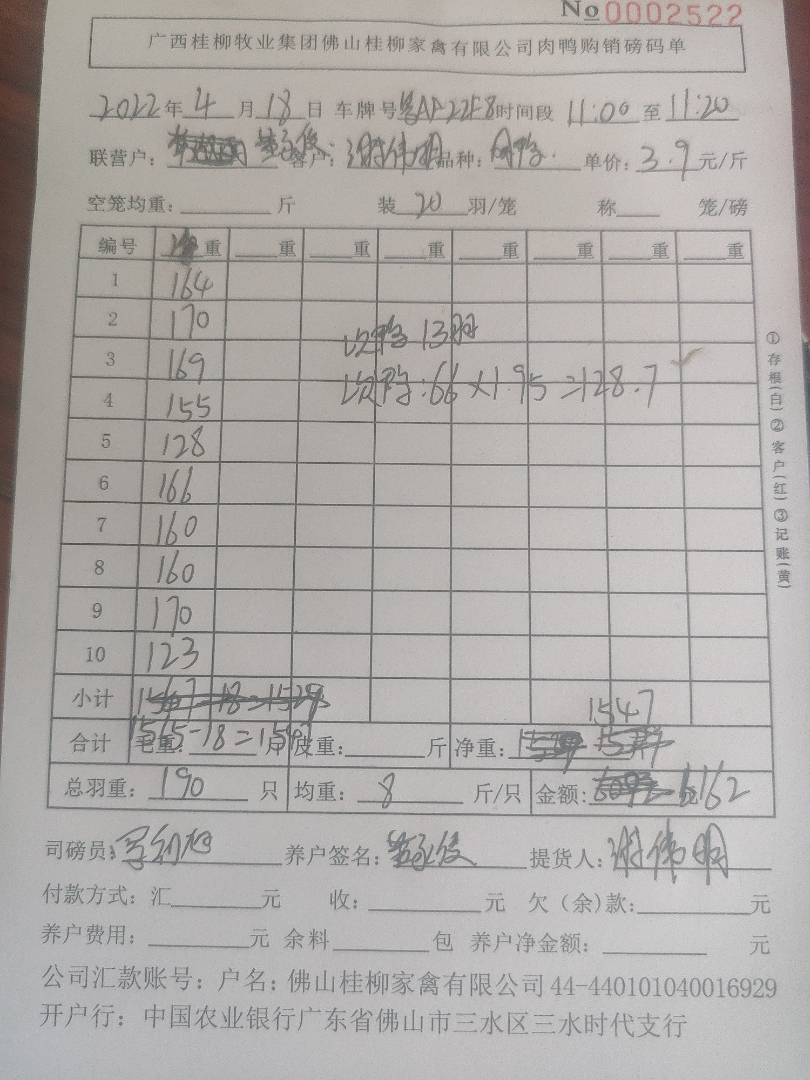 No 0002522
广西桂柳牧业集团佛山桂柳家禽有限公司肉鸭购销磅码单
2022年4月18日 车牌号粤AP22F8时间段 11:00至11:20
联营户： 客户：谢伟明品种：肉鸭 单价：3.9元/斤
空笼均重：斤 装20羽/笼 称 笼/磅
编号 净重 重 重 重 重 重 重 重
1 164
2 170
次鸭 13羽
3 169
次鸭:66×1.95=128.7
4 155
5 128
6 166
7 160
8 160
9 170
10 123
小计 1547
合计 毛重：1565-18=1547 斤 皮重：斤 净重：
总羽重：190只 均重：8斤/只 金额：6162
司磅员： 养户签名： 提货人：谢伟明
付款方式：汇元 收：元 欠（余）款：元
养户费用：元 余料包 养户净金额：元
公司汇款账号：户名：佛山桂柳家禽有限公司44-440101040016929
开户行：中国农业银行广东省佛山市三水区三水时代支行
①存根(白)②客户(红)③记账(黄)